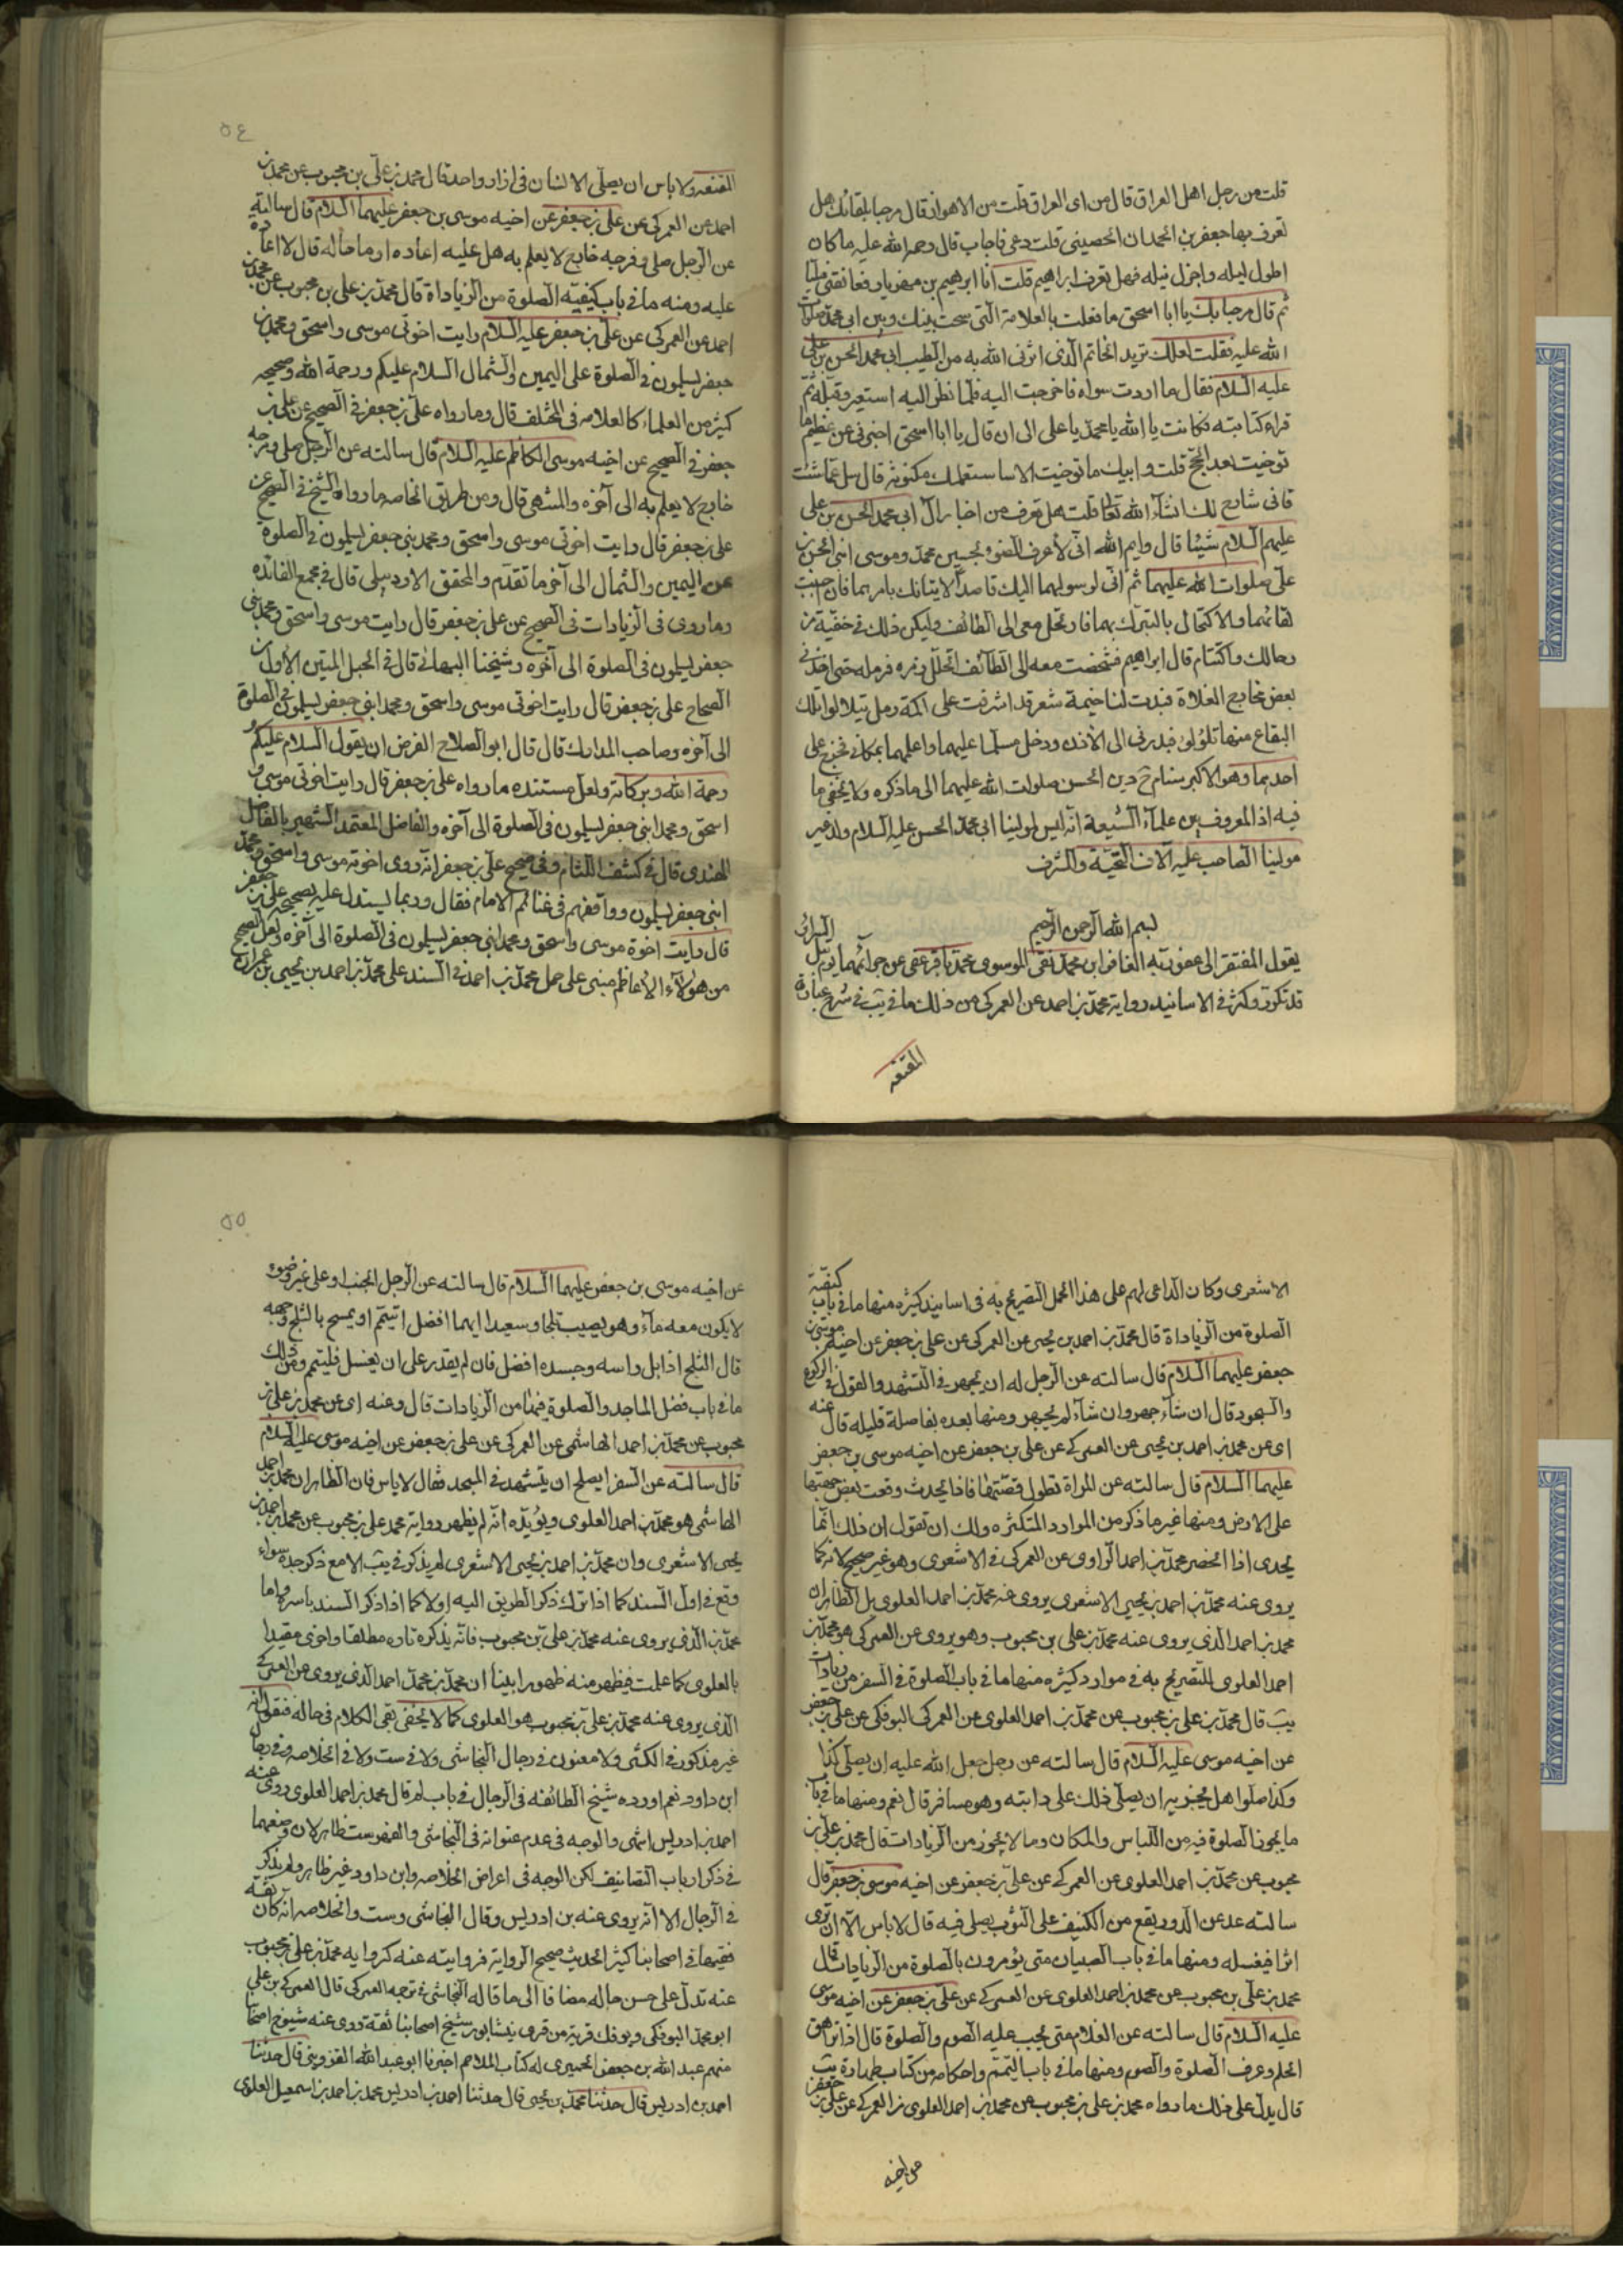 قلت من رجل اهل العراق قال من اى العراق قلت من الاهواز قال مرحبا بلقائك هل
تعرف بها جعفر بن الحمدان الحصينى قلت دعى فاجاب قال رحمة الله عليه ما كان
اطول ليله واجزل نيله فهل تعرف ابراهيم قلت انا ابراهيم بن مهزيار فعانقنى مليا
ثم قال مرحبا بك يا ابا اسحق ما فعلت بالعلامة التى وشجت بينك وبين ابى محمد صلوات
الله عليه فقلت لعلك تريد الخاتم الذى اثرنى الله به من الطيب ابى محمد الحسن بن على
عليه السلام فقال ما اردت سواه فاخرجت اليه فلما نظر اليه استعبر وقبله ثم
قراء كتابته فكانت يا الله يا محمد يا على الى ان قال يا ابا اسحق اخبرنى عن عظيم ما
توخيت بعد الحج قلت وابيك ما توخيت الا ما ساستعلمك مكنونه قال سل عما شئت
فانى شارح لك انشاء الله تعالى قلت هل تعرف من اخبار آل ابى محمد الحسن بن على
عليهم السلام شيئا قال وايم الله انى لاعرف الضوء بجبين محمد وموسى ابنى الحسن بن
على صلوات الله عليهما ثم انى لرسولهما اليك قاصدا لاتيانك بامرهما فان احببت
لقائهما والاكتحال بالتبرك بهما فارتحل معى الى الطائف وليكن ذلك فى خفية من
رجالك واكتتام قال ابراهيم فشخصت معه الى الطائف اتخلل رمله فرمله حتى اخذ فى
بعض مخارج الفلاة فبدت لنا خيمة شعر قد اشرفت على اكمة رمل تتلالؤ تلك
البقاع منها تلؤلؤ فبدرنى الى الاذن ودخل مسلما عليهما واعلمهما بمكانى فخرج على
احدهما وهو الاكبر سنا م ح م د بن الحسن صلوات الله عليهما الى ما ذكره ولا يخفى ما
فيه اذ المعروف بين علماء الشيعة انه ليس لمولينا ابى محمد الحسن عليه السلام ولد غير
مولينا الصاحب عليه آلاف التحية والشرف
بسم الله الرحمن الرحيم
يقول المفتقر الى عفو ربه الغافر ابن محمد نقى الموسوى محمد باقر عفى عن جرائمهما يوم تبلى السرائر
قد تكررت وكثر فى الاسانيد رواية محمد بن احمد عن العمركى من ذلك ما فى يب فى شرح عبارة
المقنعه
٥٤
المقنعه ولا باس ان يصلى الانسان فى ازار واحد قال محمد بن على بن محبوب عن محمد بن
احمد عن العمركى عن على بن جعفر عن اخيه موسى بن جعفر عليهما السلام قال سالته
عن الرجل صلى وفرجه خارج لا يعلم به هل عليه اعاده او ما حاله قال لا اعادة
عليه ومنه ما فى باب كيفيه الصلوة من الزياداة قال محمد بن على بن محبوب عن محمد بن
احمد عن العمركى عن على بن جعفر عليه السلام رايت اخوتى موسى واسحق ومحمد بن
جعفر يسلمون فى الصلوة على اليمين والشمال السلام عليكم ورحمة الله وصححه
كثير من العلماء كالعلامه فى المختلف قال وما رواه على بن جعفر فى الصحيح عن على بن
جعفر فى الصحيح عن اخيه موسى الكاظم عليه السلام قال سالته عن الرجل صلى وفرجه
خارج لا يعلم به الى آخره والمنتهى قال ومن طريق الخاصه ما رواه الشيخ فى الصحيح عن
على بن جعفر قال رايت اخوتى موسى واسحق ومحمد بنى جعفر يسلمون فى الصلوة
عن اليمين والشمال الى آخر ما تقدم والمحقق الاردبيلى قال فى مجمع الفائده
وما روى فى الزيادات فى الصحيح عن على بن جعفر قال رايت موسى واسحق ومحمد بنى
جعفر يسلمون فى الصلوة الى آخره وشيخنا البهائى قال فى الحبل المتين الاول من
الصحاح على بن جعفر قال رايت اخوتى موسى واسحق ومحمد ابنى جعفر يسلمون فى الصلوة
الى آخره وصاحب المدارك قال قال ابو الصلاح الفرض ان يقول السلام عليكم و
رحمة الله وبركاته ولعل مستنده ما رواه على بن جعفر قال رايت اخوتى موسى و
اسحق ومحمد ابنى جعفر يسلمون فى الصلوة الى آخره والفاضل المعتمد الشهير بالفاضل
الهندى قال فى كشف اللثام وفى صحيح على بن جعفر انه روى اخوته موسى واسحق ومحمد
ابنى جعفر يسلمون ووافقهم فى غنائم الامام فقال وربما يستدل عليه بصحيحه على بن جعفر
قال رايت اخوة موسى واسحق ومحمد ابنى جعفر يسلمون فى الصلوة الى آخره ولعل الصحيح
من هؤلاء الاعاظم مبنى على حمل محمد بن احمد فى السند على محمد بن احمد بن يحيى بن عمران
الاشعرى وكان الداعى لهم على هذا الحمل التصريح به فى اسانيد كثيره منها ما فى باب كيفية
الصلوة من الزياداة قال محمد بن احمد بن يحيى عن العمركى عن على بن جعفر عن اخيه موسى بن
جعفر عليهما السلام قال سالته عن الرجل له ان يجهر فى التشهد والقول فى الركوع
والسجود قال ان شاء جهر وان شاء لم يجهر ومنها بعده بفاصلة قليله قال عنه
اى عن محمد بن احمد بن يحيى عن العمركى عن على بن جعفر عن اخيه موسى بن جعفر
عليهما السلام قال سالته عن المراة تطول قصتها فاذا وقعت بعض جبهتها
على الارض ومنها غير ما ذكر من الموارد المتكثره ولك ان تقول ان ذلك انما
يجدى اذا انحصر محمد بن احمد الراوى عن العمركى فى الاشعرى وهو غير صحيح لانه كما
يروى عنه محمد بن احمد بن يحيى الاشعرى يروى عنه محمد بن احمد العلوى بل الظاهر ان
محمد بن احمد الذى يروى عنه محمد بن على بن محبوب وهو يروى عن العمركى هو محمد بن
احمد العلوى للتصريح به فى موارد كثيره منها ما فى باب الصلوة فى السفر من زيادات
يب قال محمد بن على بن محبوب عن محمد بن احمد العلوى عن العمركى البوفكى عن على بن جعفر
عن اخيه موسى عليه السلام قال سالته عن رجل جعل الله عليه ان يصلى كذا
وكذا صلوا هل يجزيه ان يصلى ذلك على دابته وهو مسافر قال نعم ومنها ما فى باب
ما يجوز الصلوة فيه من اللباس والمكان وما لا يجوز من الزيادات قال محمد بن على بن
محبوب عن محمد بن احمد العلوى عن العمركى عن على بن جعفر عن اخيه موسى بن جعفر قال
سالته عن الدود يقع من الكنيف على الثوب يصلى فيه قال لا باس الا ان ترى
اثرا فيغسله ومنها ما فى باب الصبيان متى يؤمرون بالصلوة من الزيادات قال
محمد بن على بن محبوب عن محمد بن احمد العلوى عن العمركى عن على بن جعفر عن اخيه موسى
عليه السلام قال سالته عن الغلام متى يجب عليه الصوم والصلوة قال اذا راهق
الحلم وعرف الصلوة والصوم ومنها ما فى باب التيمم واحكامه من كتاب طهارة يب
قال يدل على ذلك ما رواه محمد بن على بن محبوب عن محمد بن احمد العلوى عن العمركى عن على بن جعفر
عن اخيه
٥٥
عن اخيه موسى بن جعفر عليهما السلام قال سالته عن الرجل الجنب او على غير وضوء
لا يكون معه ماء وهو يصيب ثلجا وسعيدا ايهما افضل اتيمم او يمسح بالثلج وجهه
قال الثلج اذا بل راسه وجسده افضل فان لم يقدر على ان يغتسل فليتيمم ومن ذلك
ما فى باب فضل المساجد والصلوة فيها من الزيادات قال وعنه اى عن محمد بن على بن
محبوب عن محمد بن احمد الهاشمى عن العمركى عن على بن جعفر عن اخيه موسى عليه السلام
قال سالته عن السفر ايصلح ان يتشهد فى المسجد فقال لا باس فان الظاهر ان محمد بن احمد
الهاشمى هو محمد بن احمد العلوى ويؤيده انه لم يظهر رواية محمد على بن محبوب عن محمد بن احمد بن
يحيى الاشعرى وان محمد بن احمد بن يحيى الاشعرى لم يذكر فى يب الا مع ذكر جده سواء
وقع فى اول السند كما اذا ترك ذكر الطريق اليه او لا كما اذا ذكر السند باسره واما
محمد بن الذى يروى عنه محمد بن على بن محبوب فانه يذكره تاره مطلقا واخرى مقيدا
بالعلوى كما علمت فيظهر منه ظهورا بينا ان محمد بن محمد احمد الذى يروى عن العمركى
الذى يروى عنه محمد بن على بن محبوب هو العلوى كما لا يخفى بقى الكلام فى حاله فنقول انه
غير مذكور فى الكشى ولا معنون فى رجال النجاشى ولا فى ست ولا فى الخلاصه وفى رجال
ابن داود نعم اورده شيخ الطائفه فى الرجال فى باب لم قال محمد بن احمد العلوى روى عنه
احمد بن ادريس انتهى والوجه فى عدم عنوانه فى النجاشى والفهرست ظاهر لان وضعهما
فى ذكر ارباب التصانيف لكن الوجه فى اعراض الخلاصه وابن داود غير ظاهر ولم يذكر
فى الرجال الا انه يروى عنه بن ادريس وقال النجاشى وست والخلاصه انه كان ثقه
فقيها فى اصحابنا كثير الحديث صحيح الرواية فروايته عنه كروايه محمد بن على بن محبوب
عنه تدل على حسن حاله مضافا الى ما قاله النجاشى فى ترجمة العمركى قال العمركى بن على
ابو محمد البوفكى وبوفك قرية من قرى نيشابور شيخ اصحابنا ثقة روى عنه شيوخ اصحابنا
منهم عبد الله بن جعفر الحميرى له كتاب الملاحم اخبرنا ابو عبد الله القزوينى قال حدثنا
احمد بن ادريس قال حدثنا محمد بن يحيى قال حدثنا احمد بن ادريس محمد بن احمد بن اسمعيل العلوى